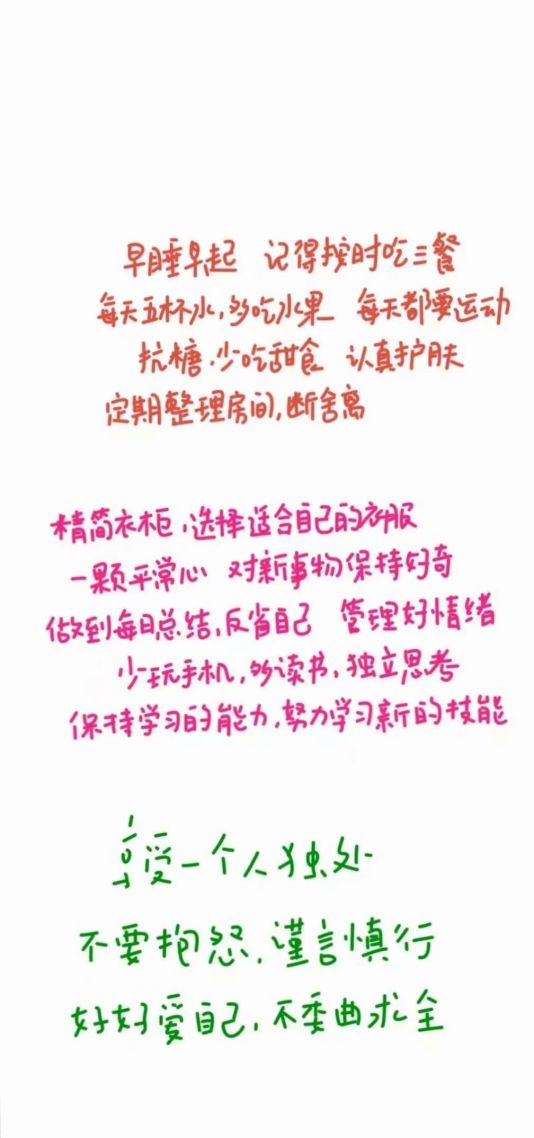 早睡早起 记得按时吃三餐
每天五杯水,多吃水果 每天都要运动
抗糖.少吃甜食 认真护肤
定期整理房间,断舍离
精简衣柜,选择适合自己的衣服
一颗平常心 对新事物保持好奇
做到每日总结,反省自己 管理好情绪
少玩手机,多读书,独立思考
保持学习的能力,努力学习新的技能
享受一个人独处
不要抱怨,谨言慎行
好好爱自己,不委曲求全